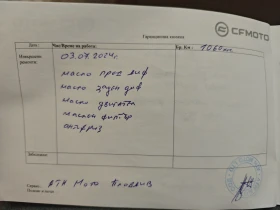 Гаранционна книжка
CFMOTO
Дата: Час/Време на работа: Бр. Км: 1065км
Извършени ремонти:
03.07.2024г.
масло пред. диф
масло заден диф
масло двигател
маслен филтър
антифриз
Забележки:
Сервиз: АТВ Мото Пловдив